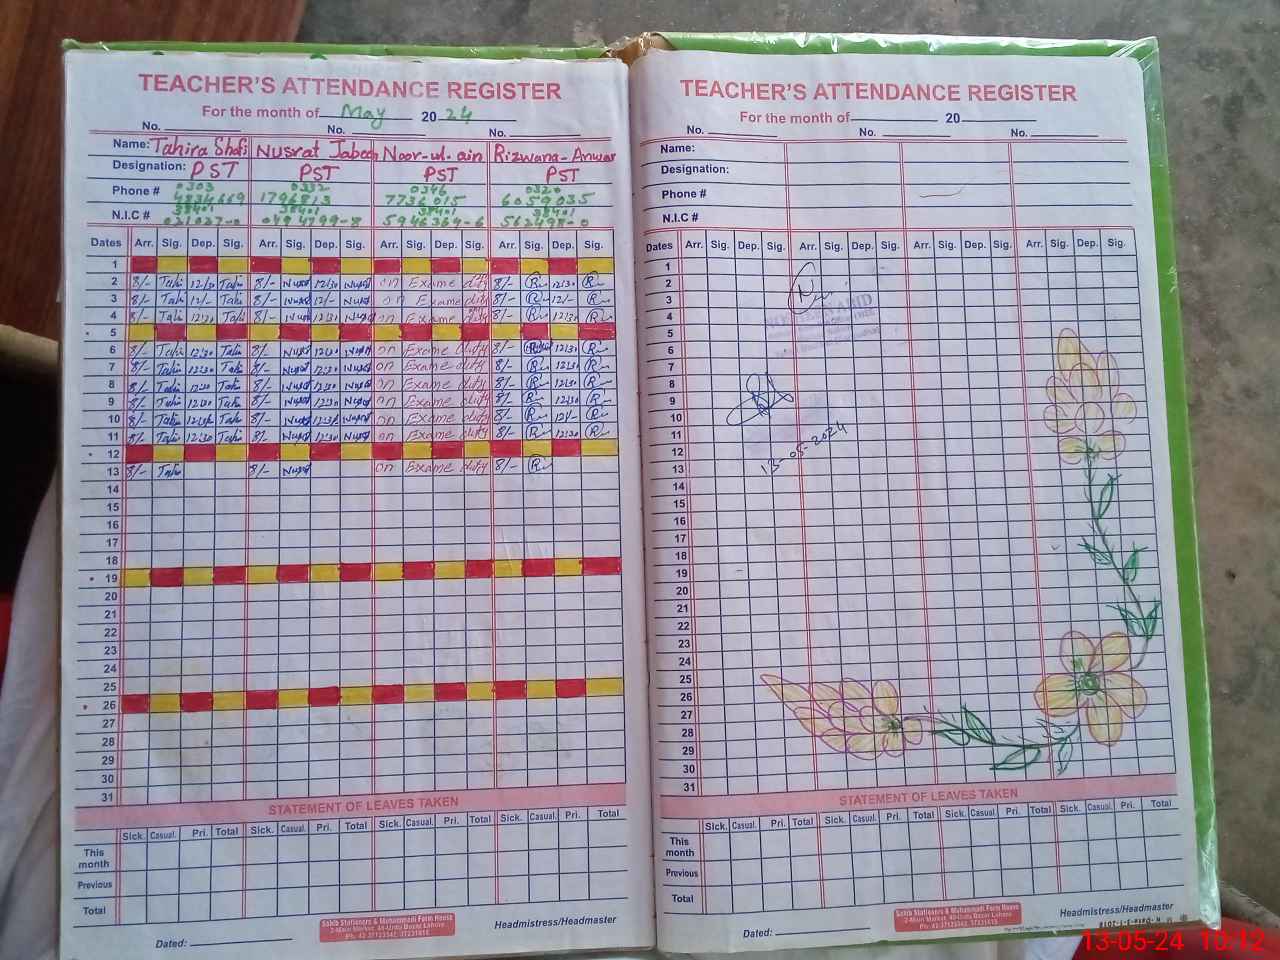 TEACHER'S ATTENDANCE REGISTER
For the month of May 2024
No. No. No.
Name: Tahira Shafi Nusrat Jabeen Noor-ul-ain Rizwana-Anwar
Designation: PST PST PST PST
Phone # 0303 0332 0346 0320
4834669 1796813 7736015 6059035
N.I.C # 38401 38401 38401 38401
Dates Arr. Sig. Dep. Sig. Arr. Sig. Dep. Sig. Arr. Sig. Dep. Sig. Arr. Sig. Dep. Sig.
1
2 8/- Tahi 12/30 Tahi 8/- Nusrat 12/30 Nusrat on Exame duty 8/- 12/30
3 8/- Tahi 12/- Tahi 8/- Nusrat 12/- Nusrat on Exame duty 8/- 12/-
4 8/- Tahi 12:30 Tahi 8/- Nusrat 12:30 Nusrat on Exame duty 8/- 12/30
5
6 8/- Tahi 12:30 Tahi 8/- Nusrat 12:30 Nusrat on Exame duty 8/- 12:30
7 8/- Tahi 12:30 Tahi 8/- Nusrat 12:30 Nusrat on Exame duty 8/- 12:30
8 8/- Tahi 12:30 Tahi 8/- Nusrat 12:30 Nusrat on Exame duty 8/- 12:30
9 8/- Tahi 12:30 Tahi 8/- Nusrat 12:30 Nusrat on Exame duty 8/- 12:30
10 8/- Tahi Tahi 8/- Nusrat Nusrat on Exame duty 8/- 12/-
11 8/- Tahi 12:30 Tahi 8/- Nusrat 12:30 Nusrat on Exame duty 8/- 12:30
12
13 8/- Tahi 8/- Nusrat on Exame duty 8/-
14
15
16
17
18
19
20
21
22
23
24
25
26
27
28
29
30
31
STATEMENT OF LEAVES TAKEN
Sick. Casual. Pri. Total Sick. Casual. Pri. Total Sick. Casual. Pri. Total Sick. Casual. Pri. Total
This month
Previous
Total
Sahib Stationers & Mohammadi Form House
2-Main Market, 40-Urdu Bazar Lahore.
Dated: Headmistress/Headmaster
TEACHER'S ATTENDANCE REGISTER
For the month of 20
No. No. No.
Name:
Designation:
Phone #
N.I.C #
Dates Arr. Sig. Dep. Sig. Arr. Sig. Dep. Sig. Arr. Sig. Dep. Sig. Arr. Sig. Dep. Sig.
1
2
3
4
5
6
7
8
9
10
11
12
13
13-05-2024
14
15
16
17
18
19
20
21
22
23
24
25
26
27
28
29
30
31
STATEMENT OF LEAVES TAKEN
Sick. Casual. Pri. Total Sick. Casual. Pri. Total Sick. Casual. Pri. Total Sick. Casual. Pri. Total
This month
Previous
Total
Sahib Stationers & Mohammadi Form House
2-Main Market, 40-Urdu Bazar Lahore.
Dated: Headmistress/Headmaster
13-05-24 10:12